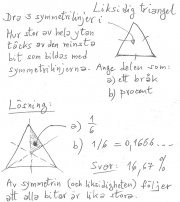 Dra 3 symmetrilinjer i
Liksidig triangel
Hur stor av hela ytan
täcks av den minsta
bit som bildas med
symmetrilinjerna. Ange delen som:
a) ett bråk
b) procent
Lösning:
a) 1/6
b) 1/6 = 0,1666...
Svar: 16,67 %
Av symmetrin (och liksidigheten) följer
att alla bitar är lika stora.